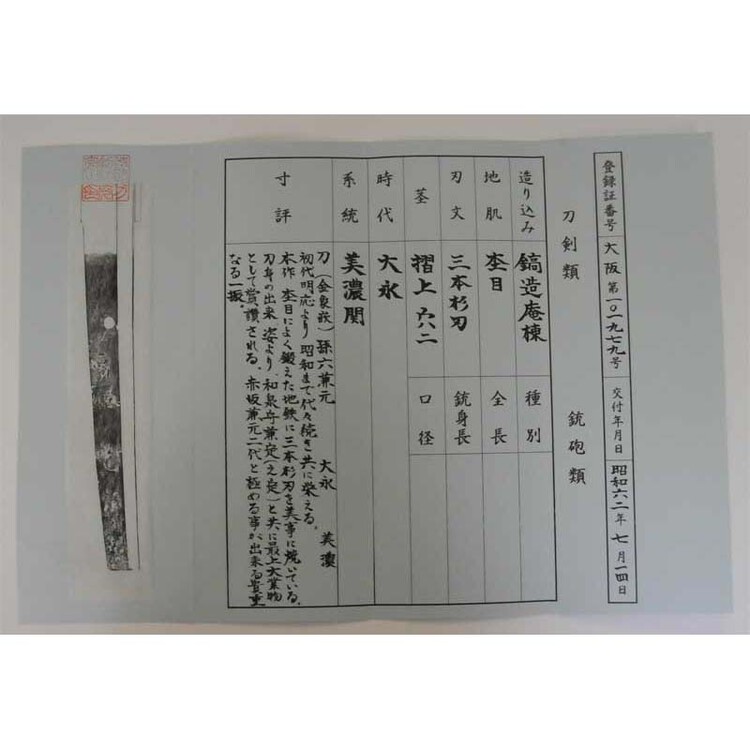 登録証番号 大阪 第一〇一九七九号 交付年月日 昭和六二年 七月一四日
刀剣類 銃砲類
造り込み 鎬造庵棟 種別
地肌 杢目 全長
刃文 三本杉刃 銃身長
茎 摺上 六六二 口径
時代 大永
系統 美濃関
寸評
刀(金象嵌)孫六兼元 大永 美濃
初代明応より昭和まで代々続き共に栄える。
本作 杢目によく鍛えた地鉄に三本杉刃を美事に焼いている。
刀身の出来 姿より、和泉守兼定(之定)と共に最上大業物
として賞讃される。赤坂兼元二代と極める事が出来る貴重
なる一振。